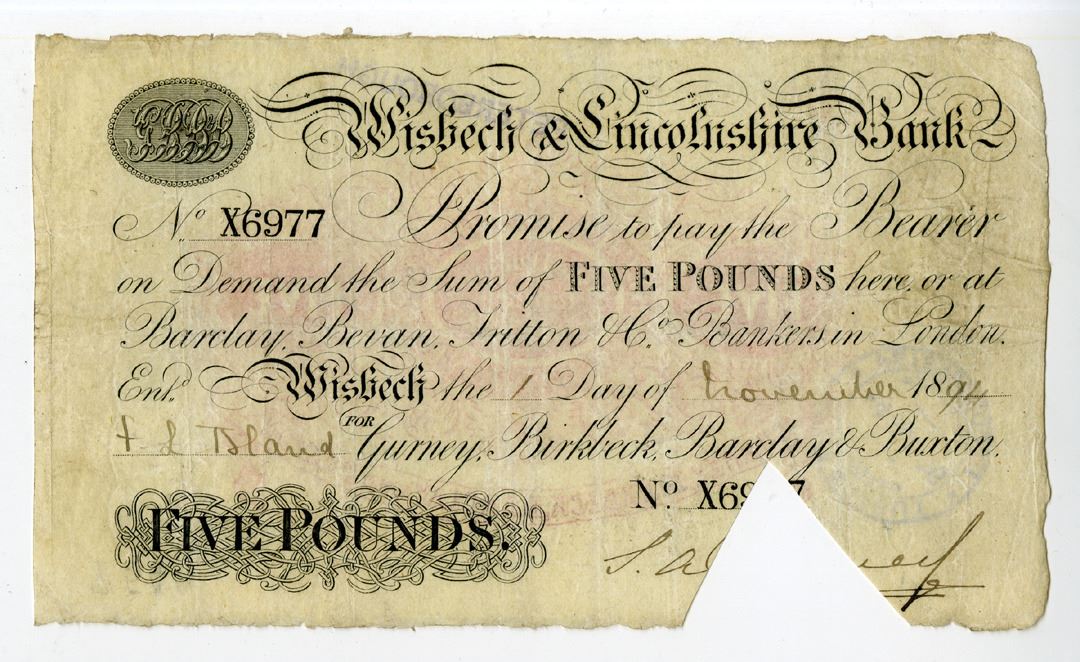 Wisbech & Lincolnshire Bank
No. X6977 I Promise to pay the Bearer
on Demand the Sum of FIVE POUNDS here, or at
Barclay, Bevan, Tritton & Co. Bankers, in London.
Entd. Wisbech the 1 Day of November 1894
FOR
F L Bland Gurney, Birkbeck, Barclay & Buxton.
No. X69 7
FIVE POUNDS.